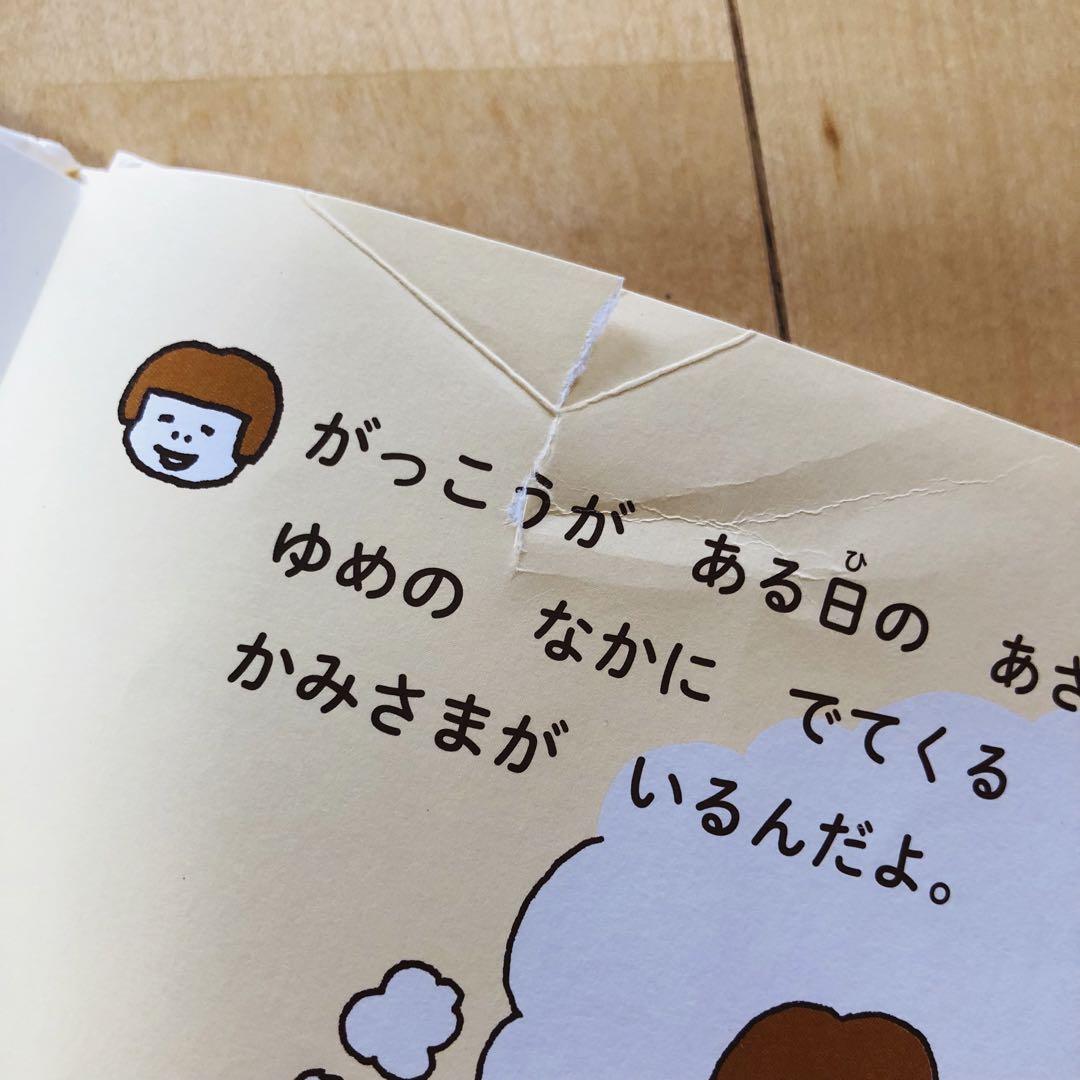 がっこうが ある日の あさ
ひ
ゆめの なかに でてくる
かみさまが いるんだよ。